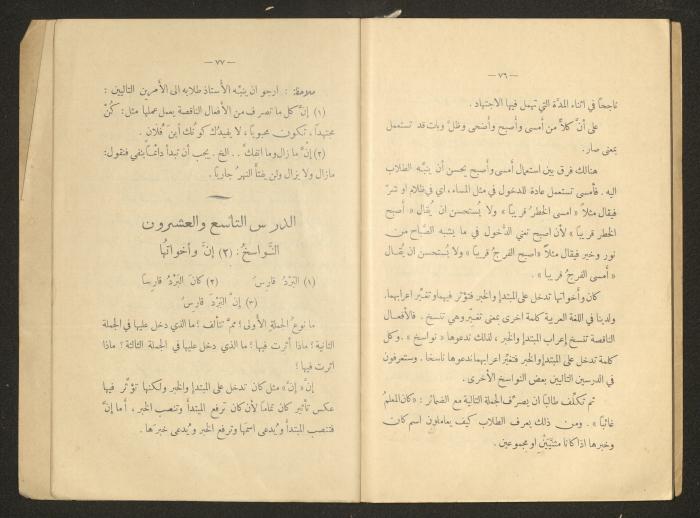 — ٧٦ —
ناجحاً في اثناء المدّة التي تهمل فيها الاجتهاد .
على أنَّ كلاًّ من أمسى وأصبح وأضحى وظلَّ وبات قد تستعمل
بمعنى صار .
هنالك فرق بين استعمال أمسى وأصبح يحسن أن ينبَّه الطلاب
اليه . فأمسى تستعمل عادة للدخول في مثل المساء ، اي في ظلام او شرّ
فيقال مثلاً « امسى الخطرُ قريباً » ولا يُستحسن ان يُقال « أصبح
الخطر قريباً » لأن اصبح تعني الدُّخول في ما يشبه الصَّباح من
نور وخير فيقال مثلاً « اصبح الفرجُ قريباً » ولا يُستحسن ان يُقال
« أمسى الفرجُ قريباً » .
كان وأخواتها تدخل على المبتدإ والخبر فتؤثر فيهما وتغيِّر اعرابهما.
ولدينا في اللغة العربية كلمة اخرى بمعنى تغيِّر وهي تنسخ . فالأفعال
الناقصة تنسخ إعراب المبتدإ والخبر ، لذلك ندعوها « نواسخ » . وكل
كلمة تدخل على المبتدإ والخبر فتغيِّر اعرابهما ندعوها ناسخاً . وستعرفون
في الدرسين التاليين بعض النواسخ الأخرى .
ثم تكلّف طالباً ان يصرّف الجملة التالية مع الضمائر : « كان المعلمُ
غائباً » . ومن ذلك يعرف الطلاب كيف يعاملون اسم كان
وخبرها اذا كانا مثنَّيَيْنِ او مجموعين .
— ٧٧ —
ملاحظة : ارجو ان ينبّه الأستاذ طلابه الى الأمرين التاليين :
(١) إنَّ كل ما تصرف من الأفعال الناقصة يعمل عملها مثل : كُنْ
مجتهداً ، تكون محبوباً ، لا يفيدُك كونُك أينَ فُلان .
(٢) إنَّ ما زال وما انفكَّ . . الخ . يجب أن تبدأ دائماً بنفي فنقول :
مازال ولا يزال ولن يفتأَ النهرُ جارياً .
الدرس التاسع والعشرون
النَّواسخُ : (٢) إنَّ وأخواتُها
(١) البَرْدُ قارسٌ (٢) كانَ البَرْدُ قارِساً
(٣) إنَّ البَرْدَ قارسٌ
ما نوعُ الجملة الأولى ؟ ممَّ تتألف ؟ ما الذي دخل عليها في الجملة
الثانية ؟ ماذا أثرت فيها ؟ ما الذي دخل عليها في الجملة الثالثة ؟ ماذا
اثرت فيها ؟
إنَّ « إنَّ » مثل كان تدخل على المبتدإ والخبر ولكنها تؤثّر فيها
عكس تأثير كان تماماً لأن كان ترفع المبتدأَ وتنصب الخبر ، أما إنَّ
فتنصب المبتدأ ويُدعى اسمها وترفع الخبر ويُدعى خبرَها .